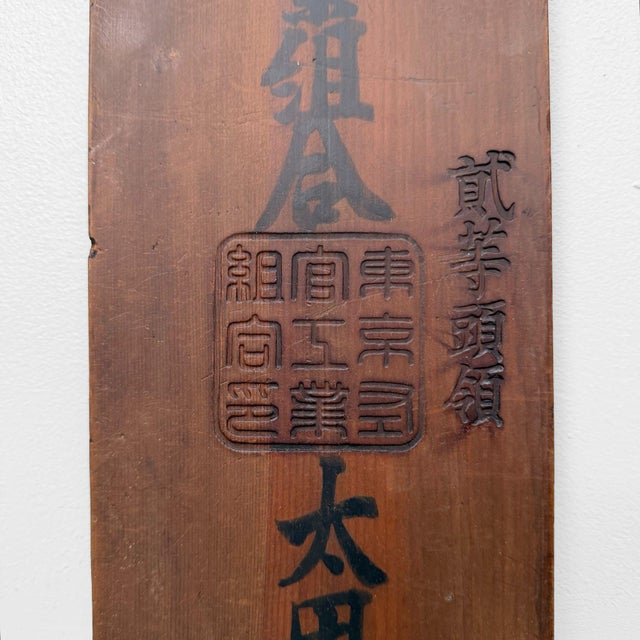 貳等頭領
組合
東京左
官工業
組合印
太田